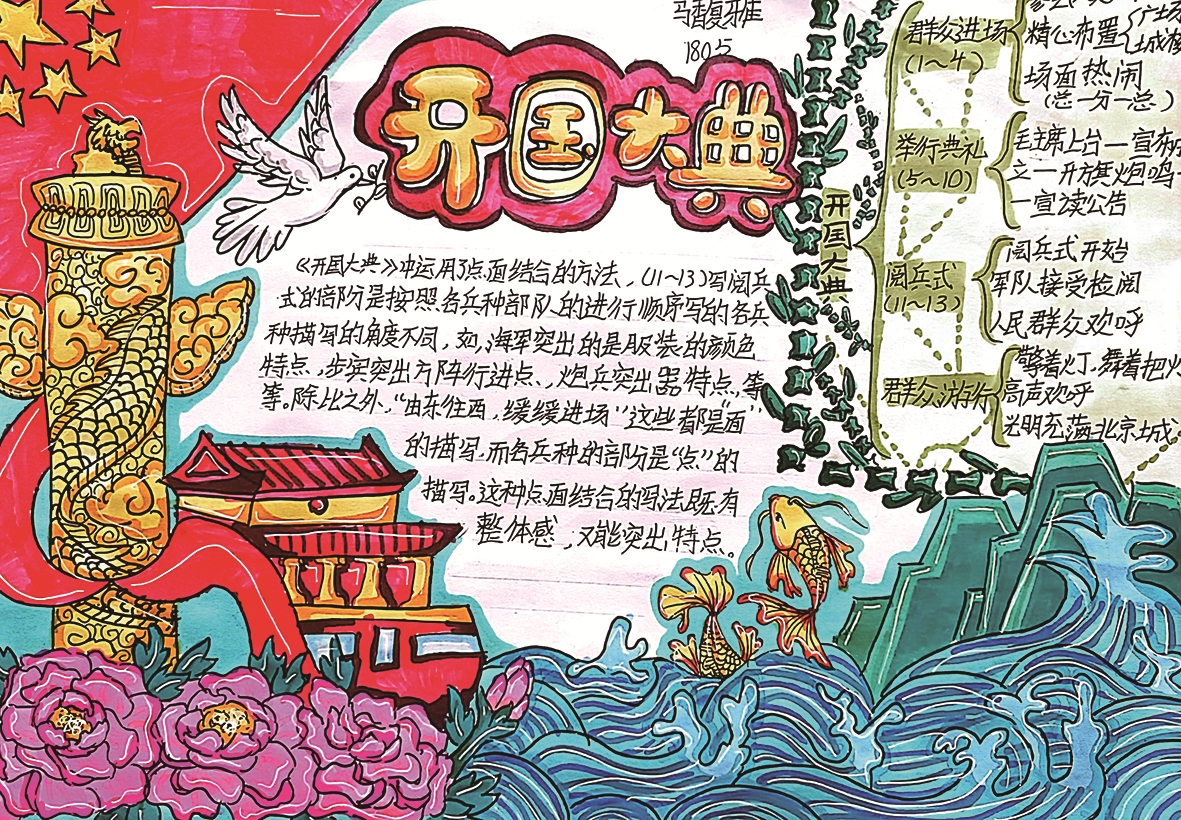 马馥雅
1805
开国大典
《开国大典》中运用了点面结合的方法，(11~13)写阅兵
式的部分是按照各兵种部队的进行顺序写的各兵
种描写的角度不同，如，海军突出的是服装的颜色
特点、步兵突出方阵行进点、炮兵突出器特点，等
等。除比之外，“由东往西，缓缓进场”这些都是“面”
的描写，而各兵种的部分是“点”的
描写。这种点面结合的写法既有
整体感，又能突出特点。
开国大典
群众进场
(1~4)
精心布置
广场
城楼
场面热闹
(总一分一总)
举行典礼
(5~10)
毛主席上台一宣布
立一升旗炮鸣一
一宣读公告
阅兵式
(11~13)
阅兵式开始
军队接受检阅
人民群众欢呼
群众游行
擎着火灯,舞着把火
高声欢呼
光明充满北京城